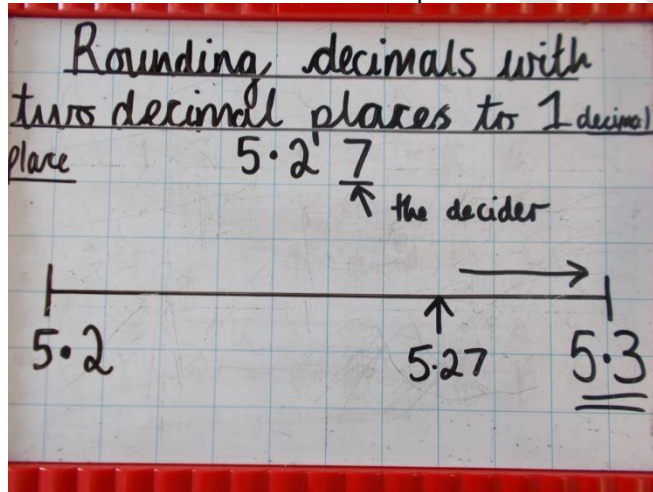 Rounding decimals with
two decimal places to 1 decimal
place 5·2'7
the decider
5·2 5·27 5·3